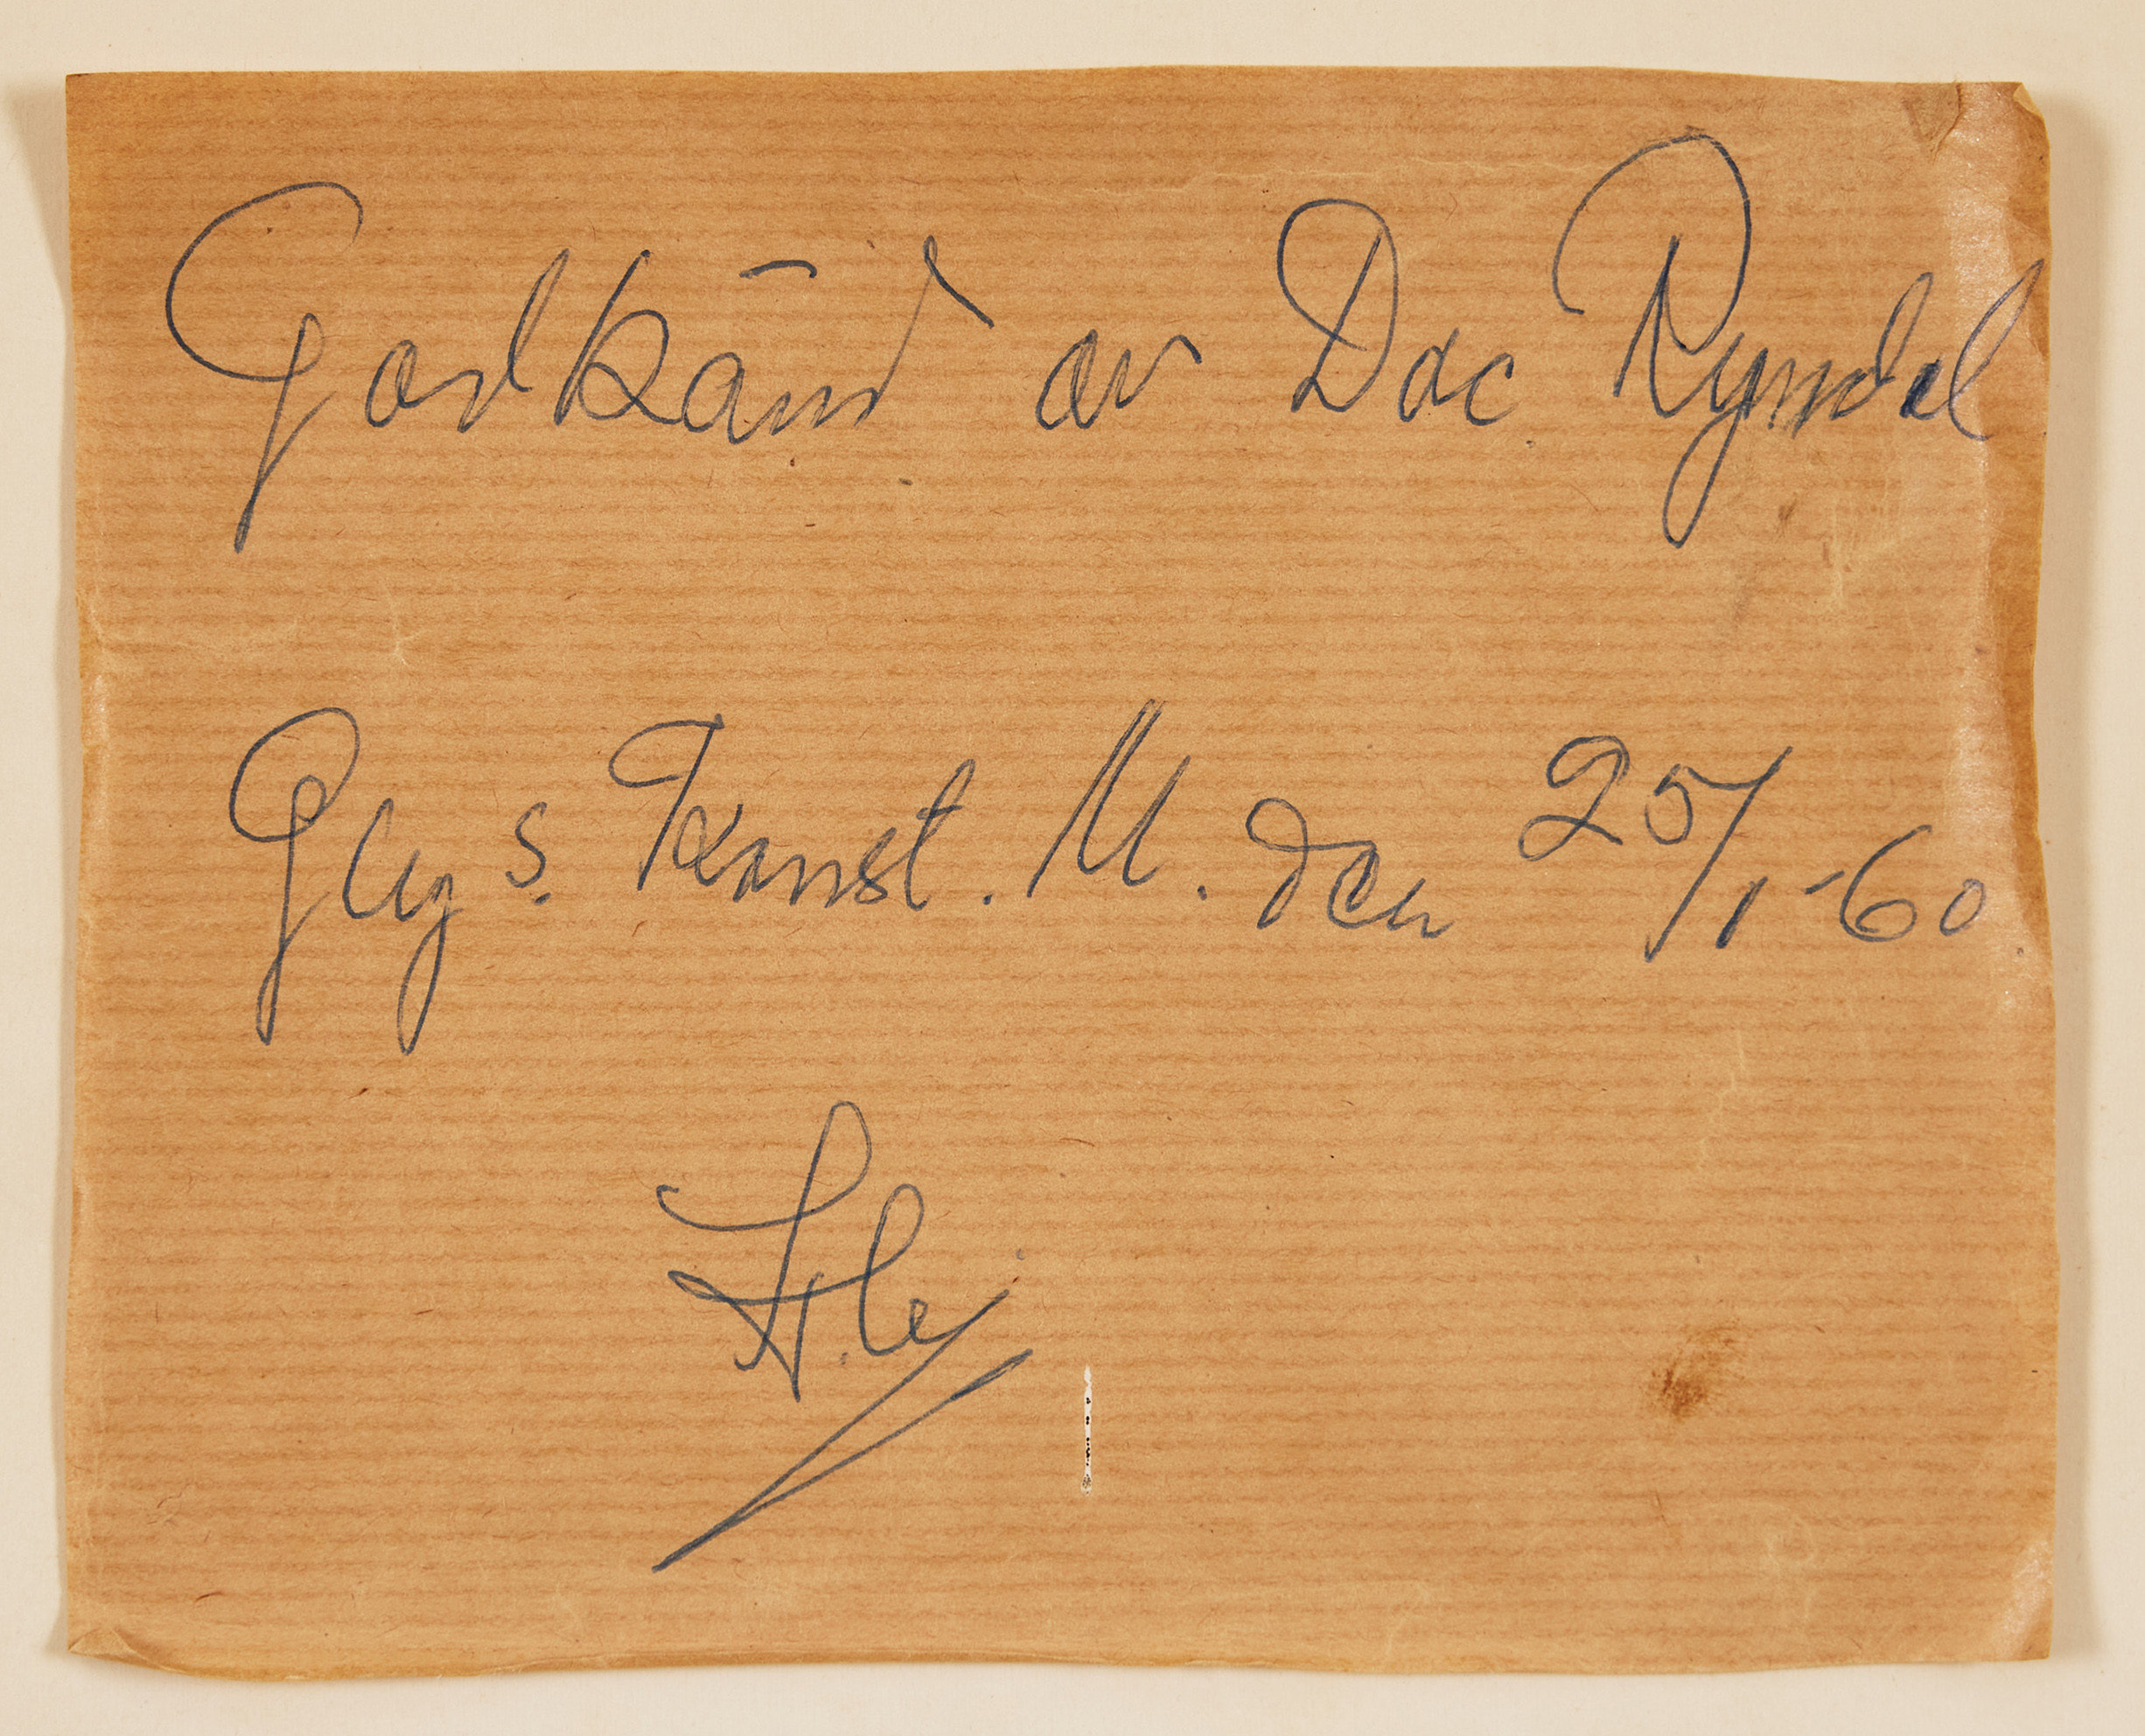 Godkänd av Doc. Rymdal
Gbgs. Konst. M. den 25/1-60